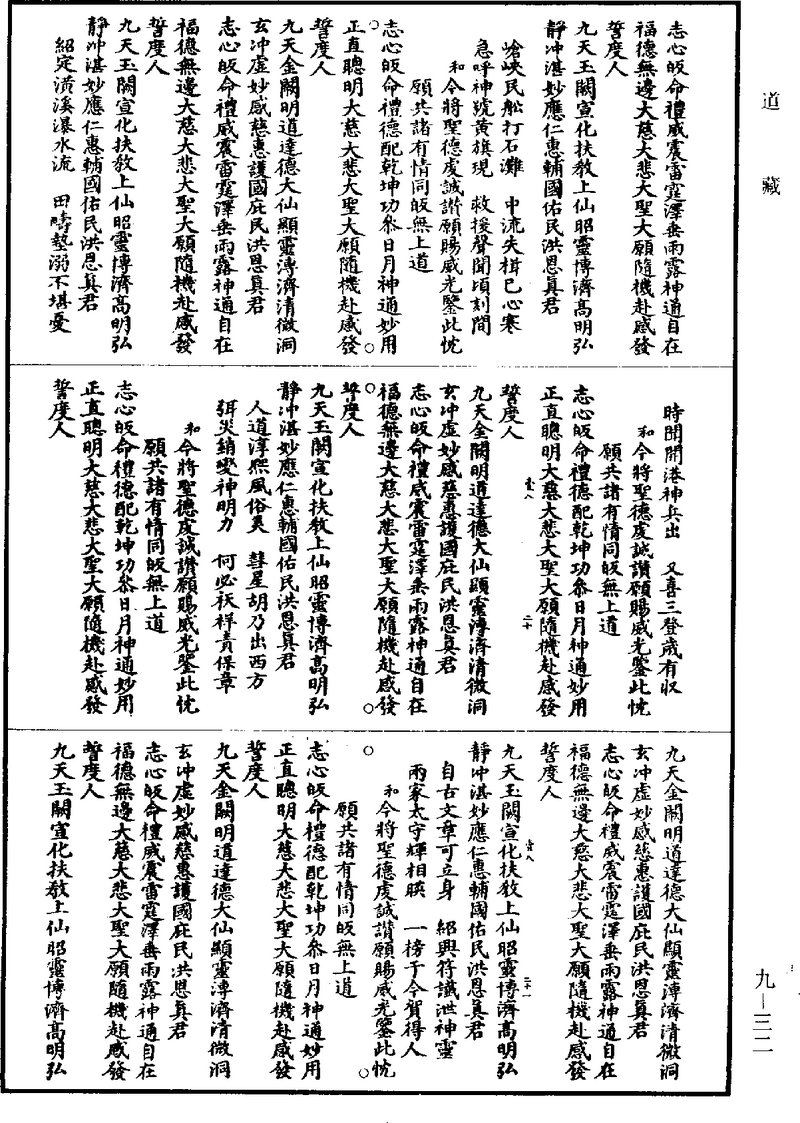 道藏
志心皈命禮威震雷霆澤垂雨露神通自在
福德無邊大慈大悲大聖大願隨機赴感發
誓度人
九天玉闕宣化扶教上仙昭靈博濟高明弘
靜冲湛妙應仁惠輔國佑民洪恩真君
嗆峽民舩打石灘　中流失楫已心寒
急呼神號黃旗現　救援聲聞頃刻間
和今將聖德虔誠讃願賜威光鑒此忱
願共諸有情同皈無上道
志心皈命禮德配乾坤功叅日月神通妙用
○正直聰明大慈大悲大聖大願隨機赴感發○
誓度人
九天金闕明道達德大仙顯靈溥濟清微洞
玄冲虛妙感慈惠護國庇民洪恩真君
志心皈命禮威震雷霆澤垂雨露神通自在
福德無邊大慈大悲大聖大願隨機赴感發
誓度人
九天玉闕宣化扶教上仙昭靈博濟高明弘
靜冲湛妙應仁惠輔國佑民洪恩真君
紹定潢溪瀑水流　田疇墊溺不堪憂
時開開港神兵出　又喜三登歲有収
和今將聖德虔誠讃願賜威光鑒此忱
願共諸有情同皈無上道
志心皈命禮德配乾坤功叅日月神通妙用
正直聰明大慈大悲大聖大願隨機赴感發
二十
誓度人
九天金闕明道達德大仙顯靈溥濟清微洞
玄冲虛妙感慈惠護國庇民洪恩真君
志心皈命禮威震雷霆澤垂雨露神通自在
福德無邊大慈大悲大聖大願隨機赴感發
○誓度人○
九天玉闕宣化扶教上仙昭靈博濟高明弘
靜冲湛妙應仁惠輔國佑民洪恩真君
人道淳熙風俗美　彗星胡乃出西方
弭災銷變神明力　何必祅祥責保章
和今將聖德虔誠讃願賜威光鑒此忱
願共諸有情同皈無上道
志心皈命禮德配乾坤功叅日月神通妙用
正直聰明大慈大悲大聖大願隨機赴感發
誓度人
九天金闕明道達德大仙顯靈溥濟清微洞
玄冲虛妙感慈惠護國庇民洪恩真君
志心皈命禮威震雷霆澤垂雨露神通自在
福德無邊大慈大悲大聖大願隨機赴感發
誓度人
二十一
九天玉闕宣化扶教上仙昭靈博濟高明弘
靜冲湛妙應仁惠輔國佑民洪恩真君
自古文章可立身　紹興符讖泄神靈
兩家太守輝相暎　一榜于今賀得人
和今將聖德虔誠讃願賜威光鑒此忱
○願共諸有情同皈無上道○
志心皈命禮德配乾坤功叅日月神通妙用
正直聰明大慈大悲大聖大願隨機赴感發
誓度人
九天金闕明道達德大仙顯靈溥濟清微洞
玄冲虛妙感慈惠護國庇民洪恩真君
志心皈命禮威震雷霆澤垂雨露神通自在
福德無邊大慈大悲大聖大願隨機赴感發
誓度人
九天玉闕宣化扶教上仙昭靈博濟高明弘
九—三二